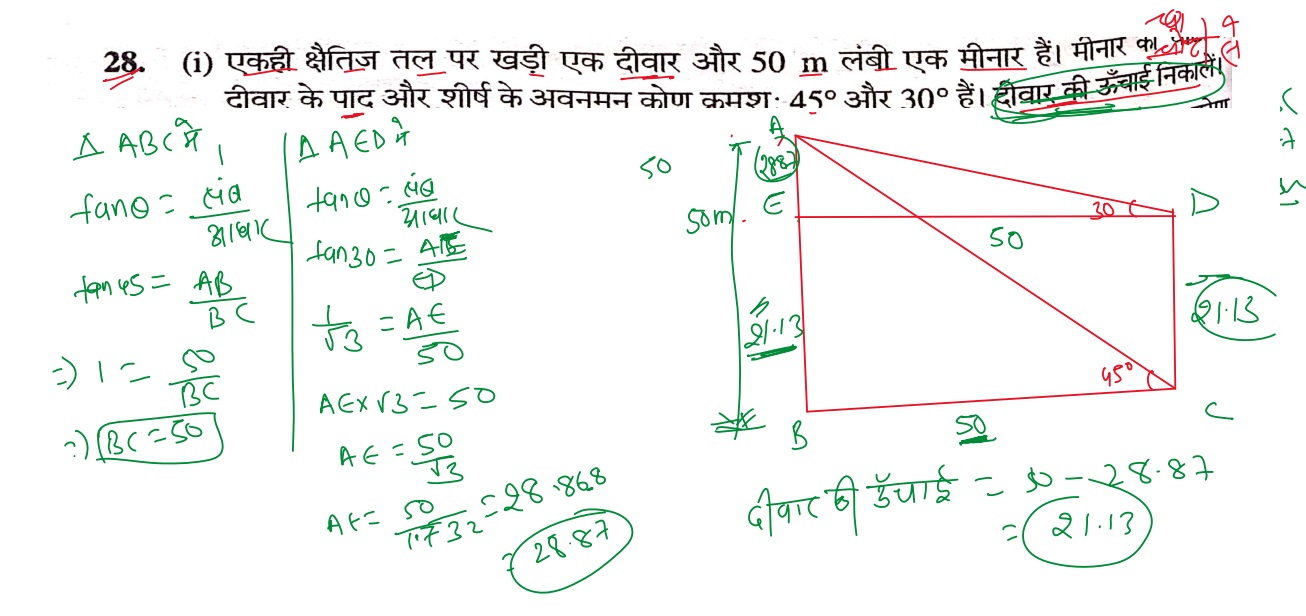 28. (i) एकही क्षैतिज तल पर खड़ी एक दीवार और 50 m लंबी एक मीनार हैं। मीनार का
दीवार के पाद और शीर्ष के अवनमन कोण क्रमशः 45° और 30° हैं। दीवार की ऊँचाई निकालें।
Δ ABC में,
tanθ = लंब / आधार
tan45 = AB / BC
=> 1 = 50 / BC
=> BC = 50
Δ AED में
tanθ = लंब / आधार
tan30 = AE / ED
1 / √3 = AE / 50
AE × √3 = 50
AE = 50 / √3
AE = 50 / 1.732 = 28.868
= 28.87
50
A
(28.87)
50m.
E
30
D
50
21.13
21.13
45°
B
50
C
दीवार की ऊँचाई = 50 - 28.87
= 21.13